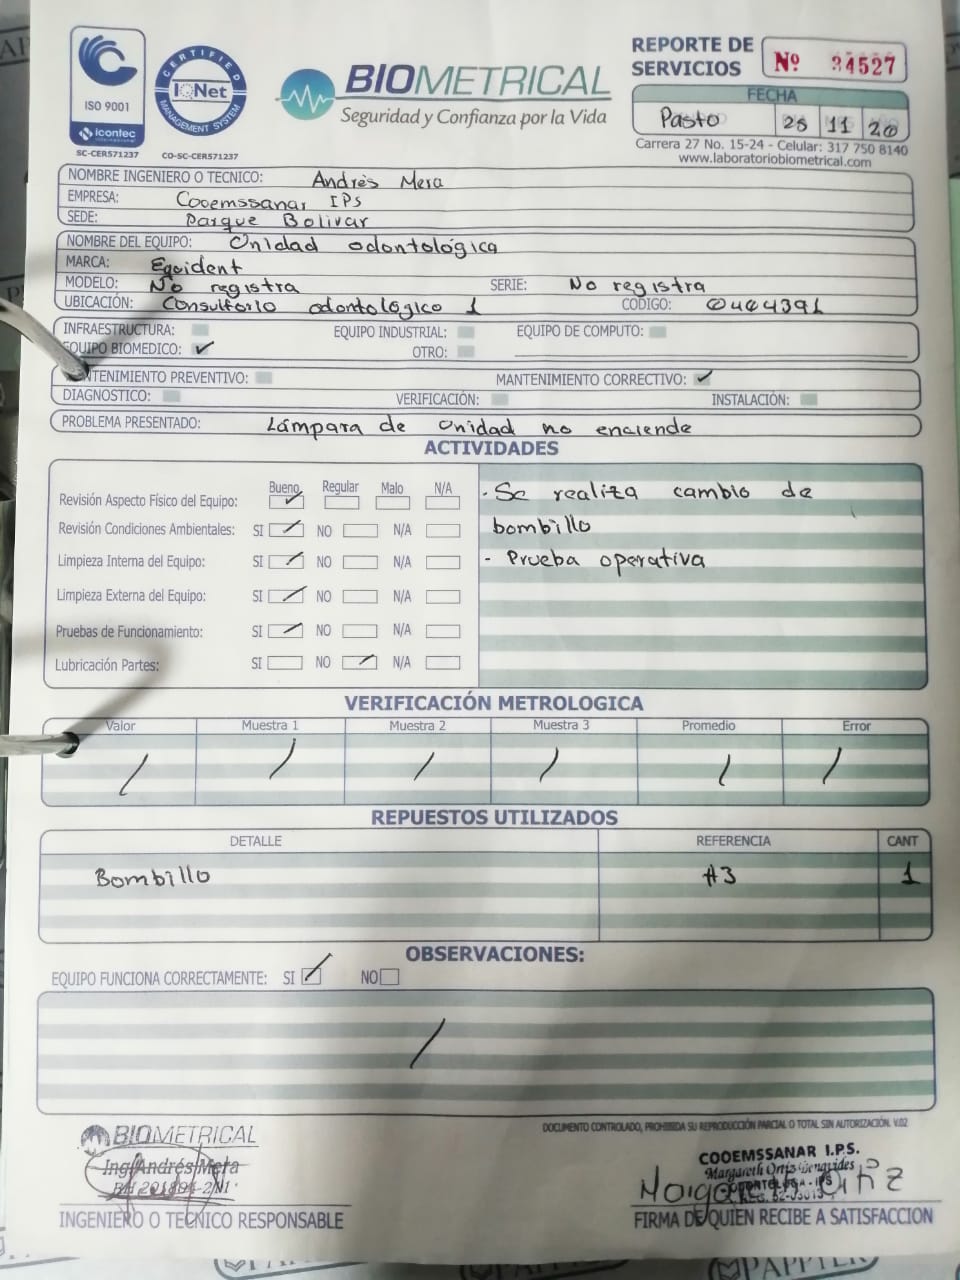 ISO 9001
icontec
international
SC-CER571237
CERTIFIED
IQNet
MANAGEMENT SYSTEM
CO-SC-CER571237
BIOMETRICAL
Seguridad y Confianza por la Vida
REPORTE DE SERVICIOS Nº 34527
FECHA
Pasto 25 11 20
Carrera 27 No. 15-24 - Celular: 317 750 8140
www.laboratoriobiometrical.com
NOMBRE INGENIERO O TECNICO: Andrés Mera
EMPRESA: Cooemssanar IPS
SEDE: Parque Bolivar
NOMBRE DEL EQUIPO: Unidad odontológica
MARCA: Equident
MODELO: No registra SERIE: No registra
UBICACIÓN: Consultorio odontológico 1 CODIGO: 0464391
INFRAESTRUCTURA: EQUIPO INDUSTRIAL: EQUIPO DE COMPUTO:
EQUIPO BIOMEDICO: ✓ OTRO:
MANTENIMIENTO PREVENTIVO: MANTENIMIENTO CORRECTIVO: ✓
DIAGNOSTICO: VERIFICACIÓN: INSTALACIÓN:
PROBLEMA PRESENTADO: Lámpara de unidad no enciende
ACTIVIDADES
Bueno Regular Malo N/A
Revisión Aspecto Físico del Equipo: ✓
Revisión Condiciones Ambientales: SI / NO N/A
Limpieza Interna del Equipo: SI / NO N/A
Limpieza Externa del Equipo: SI / NO N/A
Pruebas de Funcionamiento: SI / NO N/A
Lubricación Partes: SI NO / N/A
- Se realiza cambio de
bombillo
- Prueba operativa
VERIFICACIÓN METROLOGICA
Valor Muestra 1 Muestra 2 Muestra 3 Promedio Error
/ / / / / /
REPUESTOS UTILIZADOS
DETALLE REFERENCIA CANT
Bombillo #3 1
OBSERVACIONES:
EQUIPO FUNCIONA CORRECTAMENTE: SI / NO
/
DOCUMENTO CONTROLADO, PROHIBIDA SU REPRODUCCIÓN PARCIAL O TOTAL SIN AUTORIZACIÓN. V.02
BIOMETRICAL
Ing. Andrés Mera
INGENIERO O TECNICO RESPONSABLE
COOEMSSANAR I.P.S.
Margareth Ortiz Benavides
ODONTOLOGA - IPS
Margareth Ortiz
FIRMA DE QUIEN RECIBE A SATISFACCION